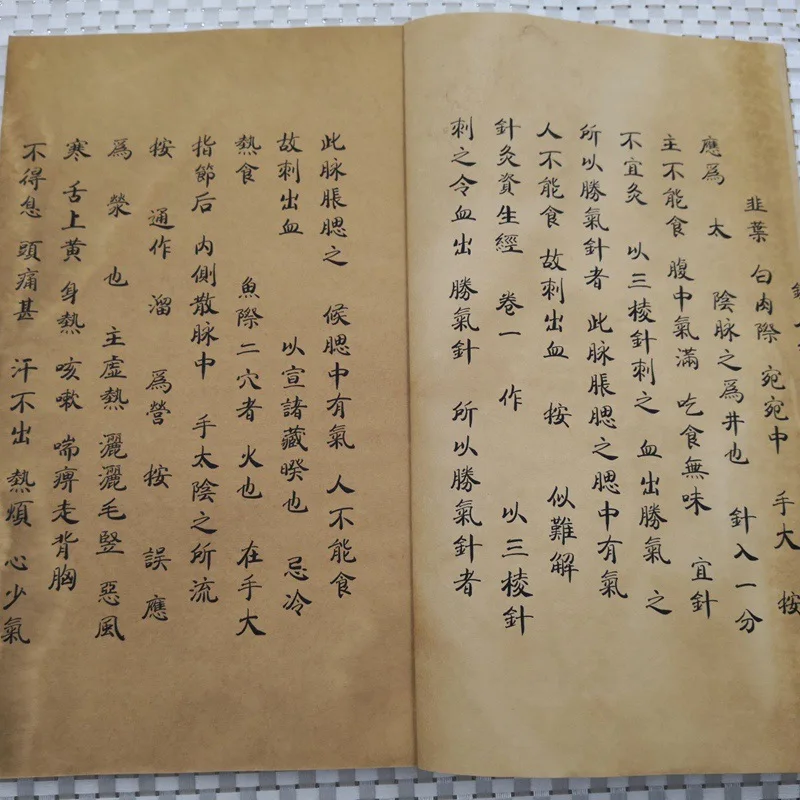 韭葉 白肉際 宛宛中 手大 按
應爲 太 陰脉之爲井也 針入一分
主不能食 腹中氣滿 吃食無味 宜針
不宜灸 以三棱針刺之 血出勝氣 之
所以勝氣針者 此脉脹腮之腮中有氣
人不能食 故刺出血 按 似難解
針灸資生經 卷一 作 以三棱針
刺之令血出 勝氣針 所以勝氣針者
此脉脹腮之 候腮中有氣 人不能食
故刺出血 以宣諸藏暌也 忌冷
熱食 魚際二穴者 火也 在手大
指節后 内側散脉中 手太陰之所流
按 通作 溜 爲營 按 誤應
爲 滎 也 主虛熱 灑灑毛竪 惡風
寒 舌上黄 身熱 咳嗽 喘痹走背胸
不得息 頭痛甚 汗不出 熱煩 心少氣